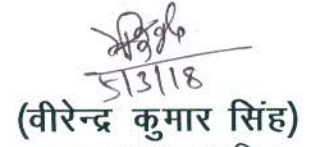 5/3/18
(वीरेन्द्र कुमार सिंह)